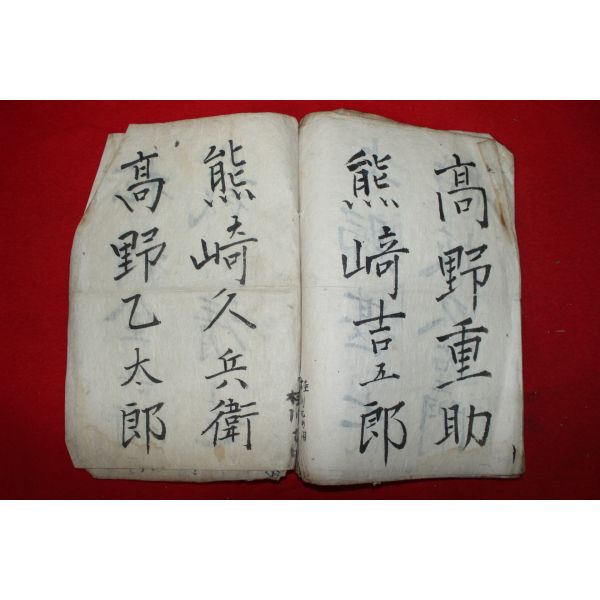 髙野重助
熊﨑吉五郎
熊﨑久兵衛
髙野乙太郎